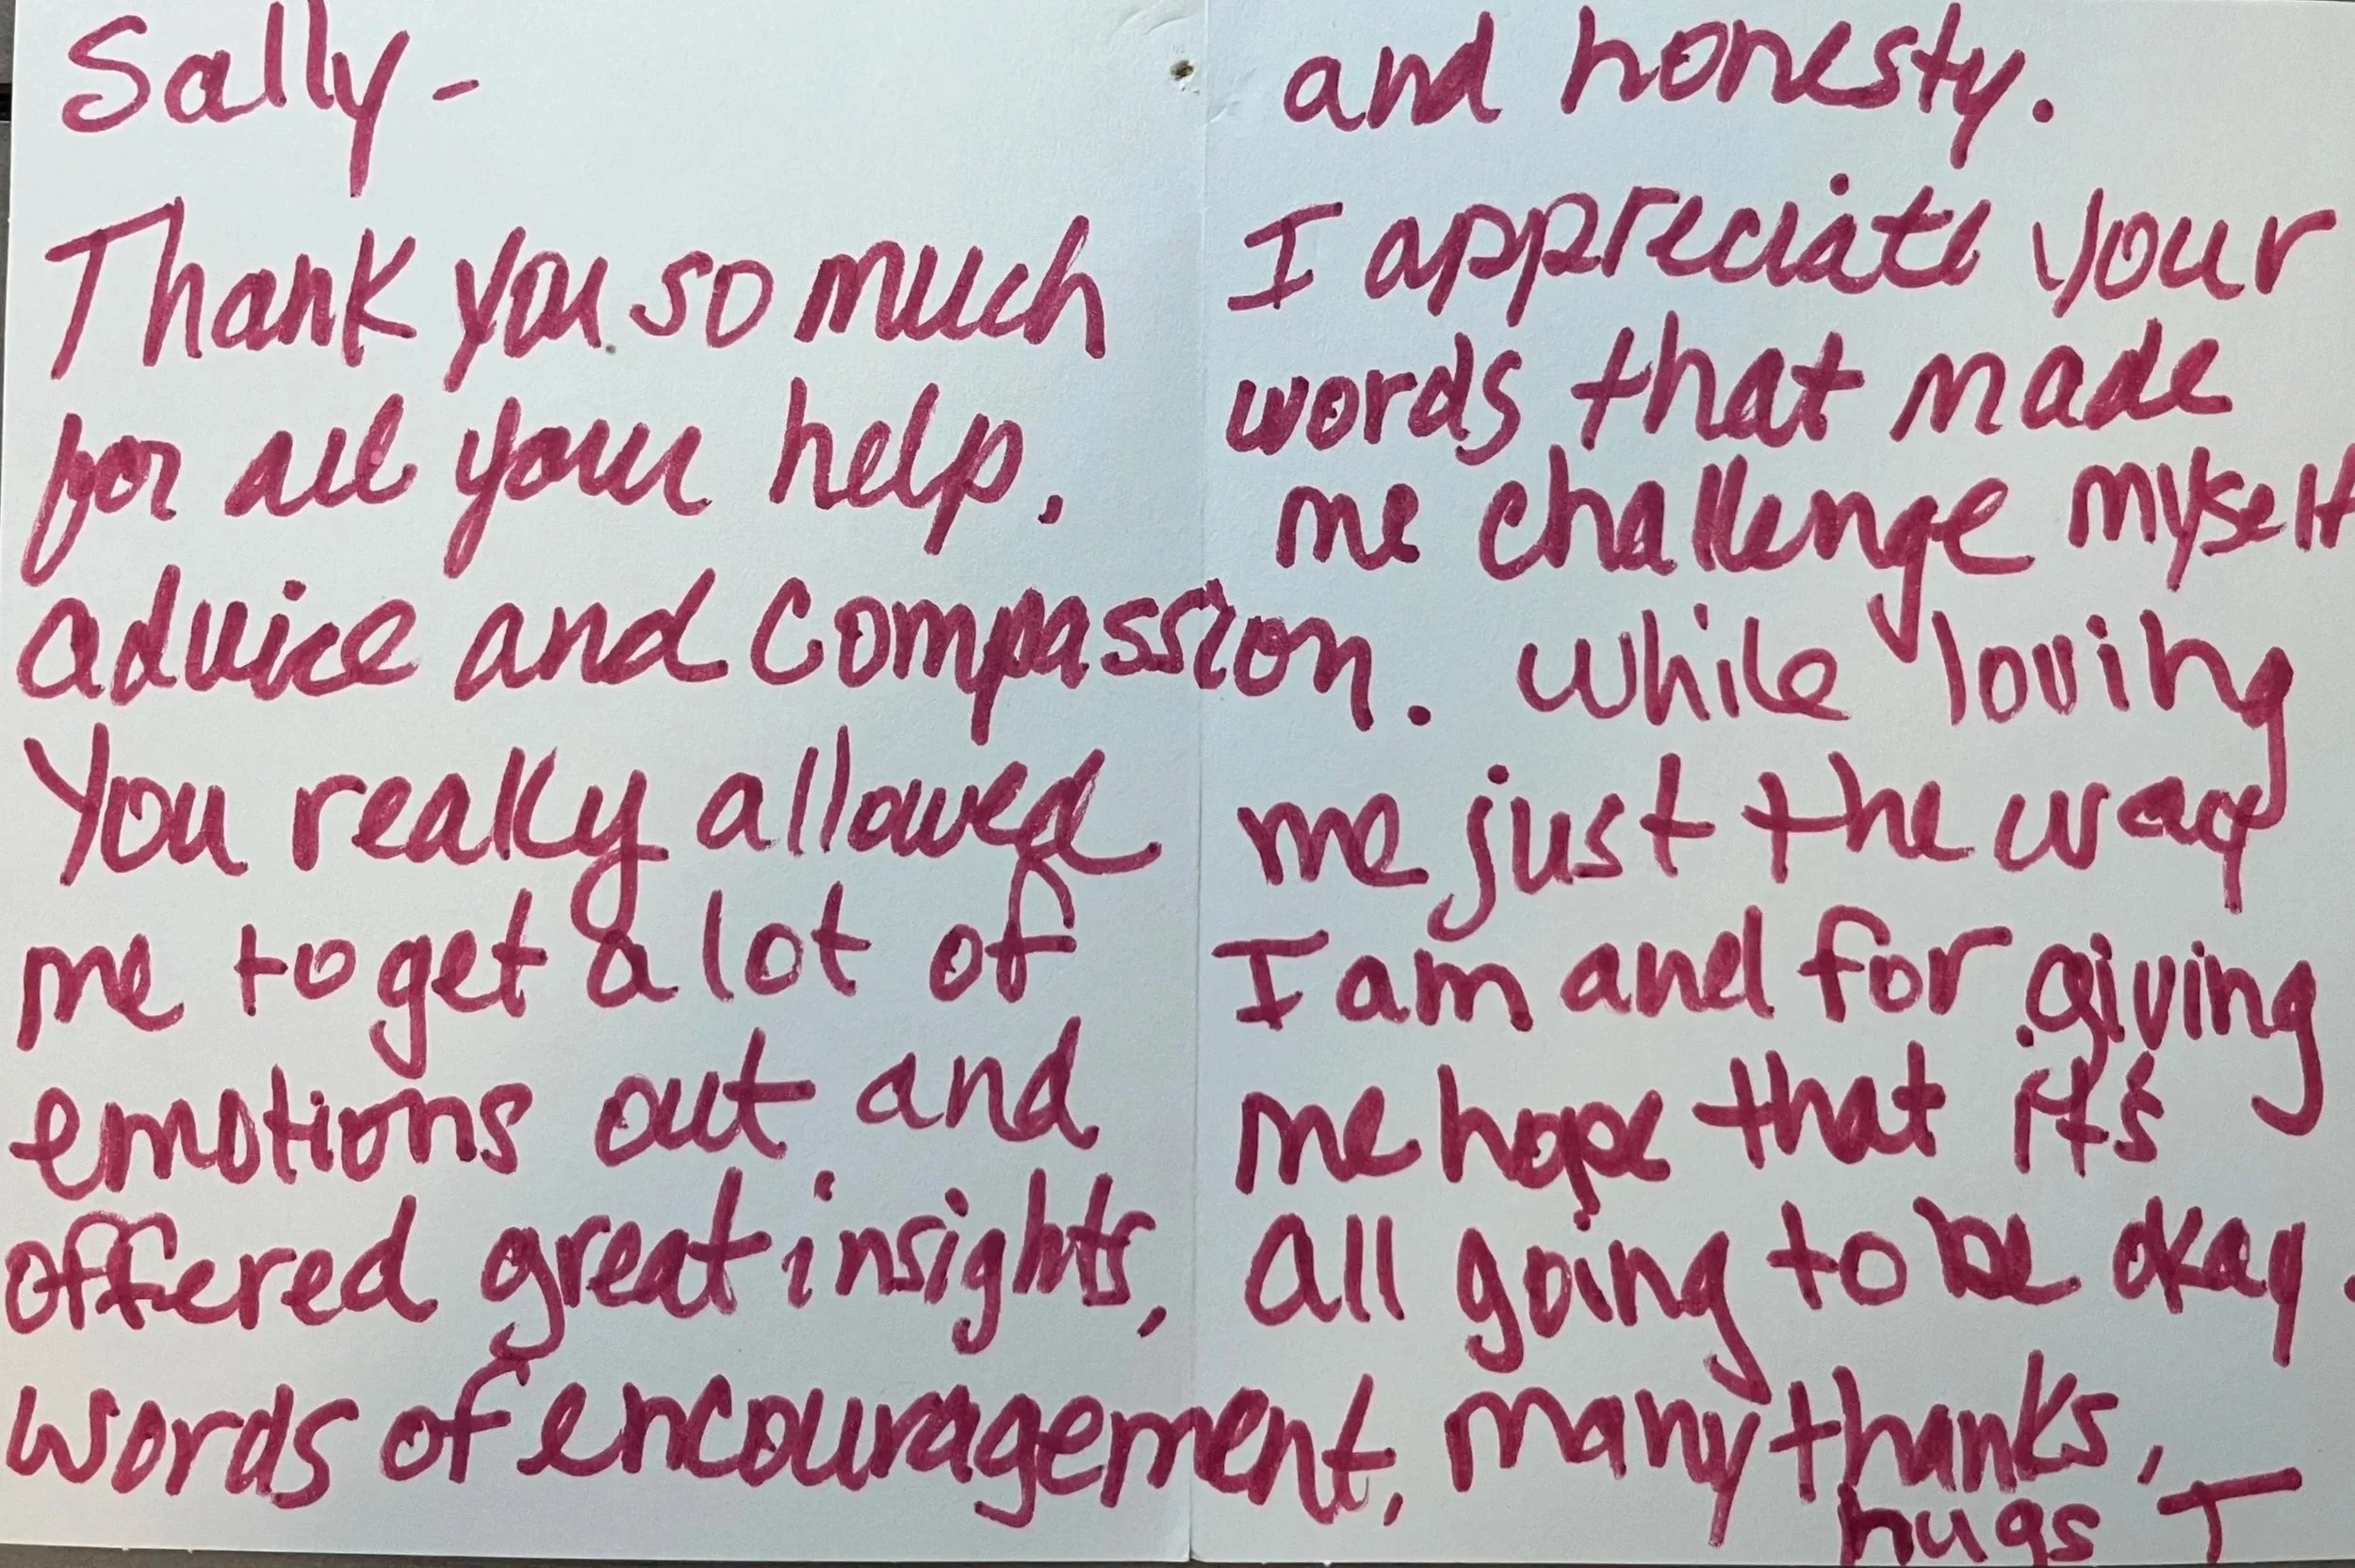 Sally -
Thank you so much
for all your help,
advice and compassion.
You really allowed
me to get a lot of
emotions out and
offered great insights,
words of encouragement,
and honesty.
I appreciate your
words that made
me challenge myself
while loving
me just the way
I am and for giving
me hope that it's
all going to be okay.
many thanks,
hugs T